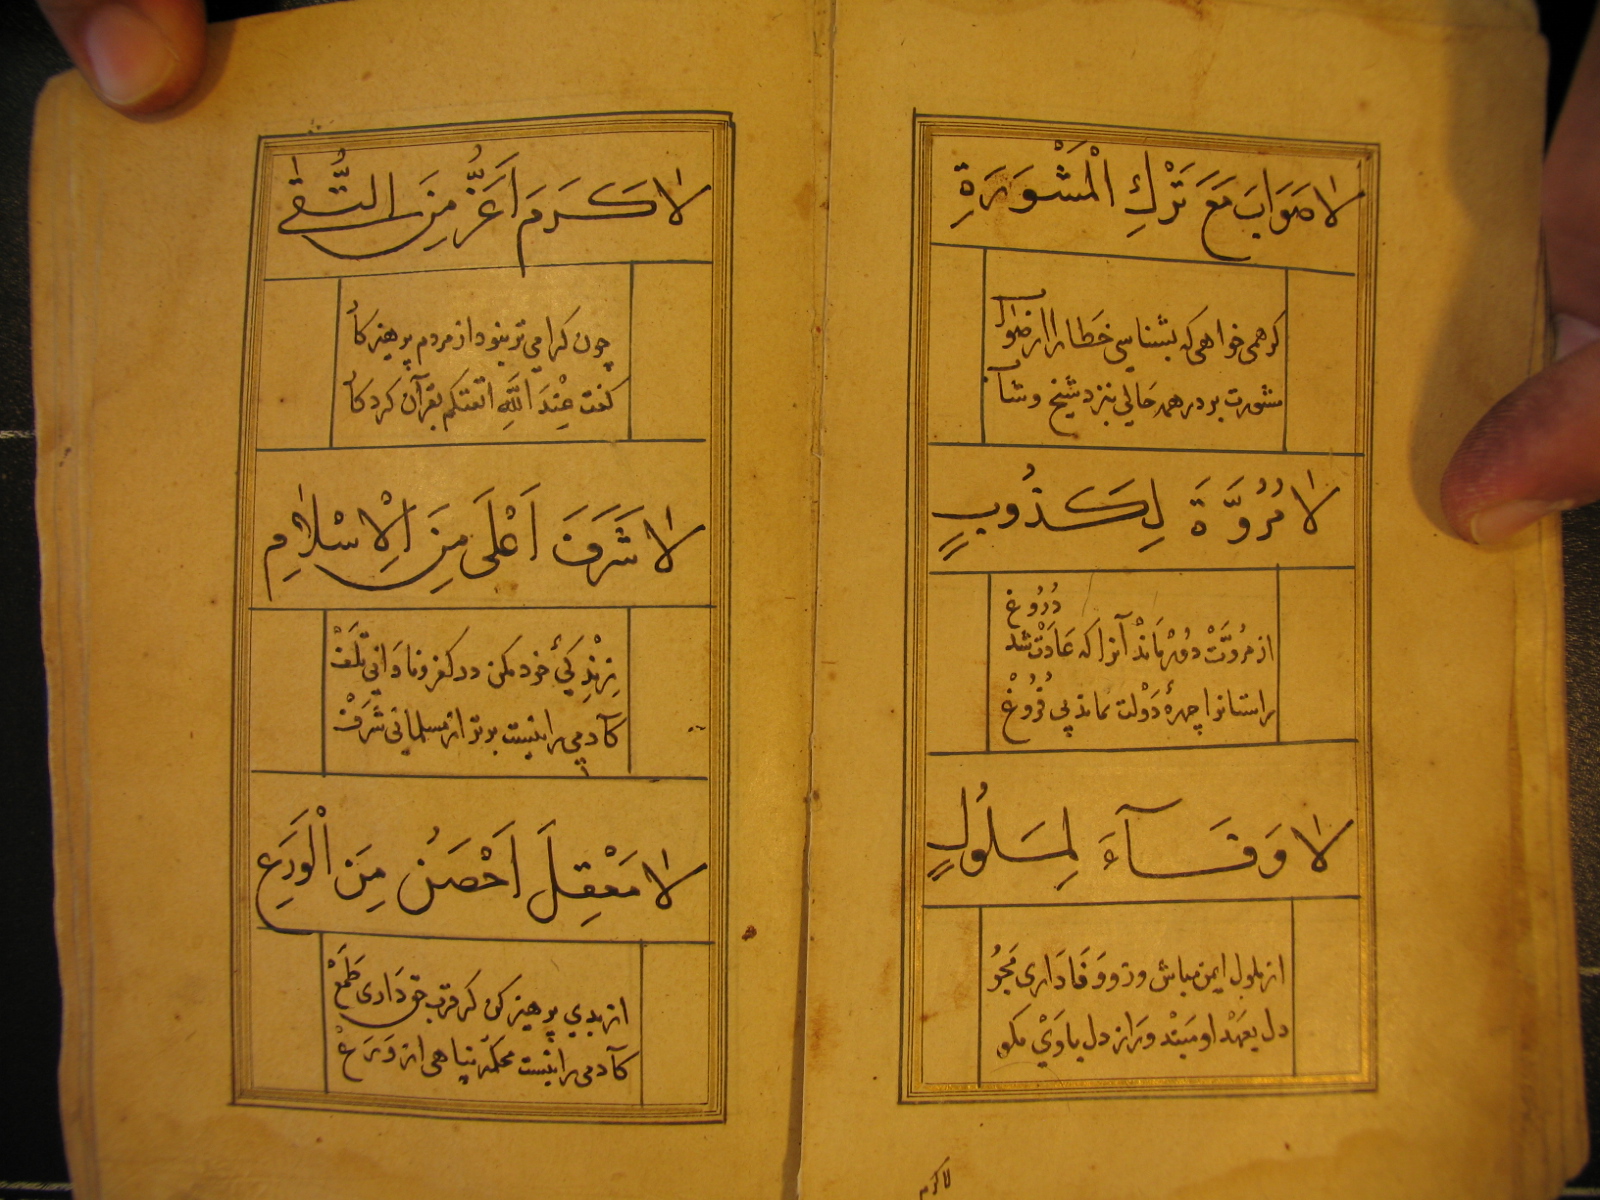 لا صَوَابَ مَعَ تَرْكِ الْمَشْوَرَةِ
کر همی خواهی که بشناسی خَطَا را از صَواب
مشورت بر در همه حالی بنزد شیخ و شاب
لا مُرُوَّةَ لِكَذُوبٍ
دُرُوغ
از مُروَّتْ دور مَانْد آنرا که عَادَتْ شد
راستانرا چهرهٔ دَوْلت نماند بی فُرُوغْ
لا وَفَاءَ لِمَلُولٍ
از ملول ایمن مباش و زو وَفَاداری مَجُو
دل بعهد او مَبَنْد و راز دل باوَیْ مکو
لاکرم
لا كَرَمَ اَعَزُّ مِنَ التُّقٰى
چون کرامی تر بنود از مردم پرهیزکا
کفت عِنْدَ اللّٰهِ اتقیکم بقرآن کردکا
لا شَرَفَ اَعْلَى مِنَ الْاِسْلَامِ
خود مکن در کفر و نادانی تَلَفْ
کآدمی را نیست برتر از مسلمانی شَرَفْ
لا مَعْقِلَ اَحْصَنُ مِنَ الْوَرَعِ
از بدی پرهیز کن کر قرب حق دَاری طَمَعْ
کآدمی را نیست محکمتر پناهی از وَرَعْ